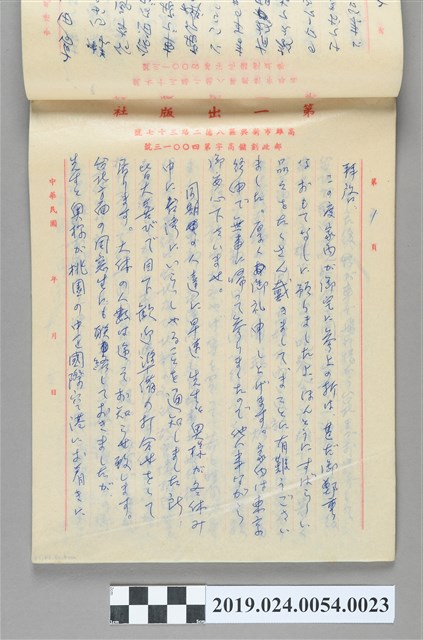 第一出版社
高雄市新興區八德二路三十七號
郵政劃撥高字第四〇〇一三號
第 1 頁
拝啓
この度家内が御宅に参上の折は、甚だ御鄭重
なおもてなしに預りました上、ほんとうにすばらしい
品々をたくさん戴きまして、まことに有難うござい
ました。厚く御礼申し上げます。家内は東京
経由で無事に帰って参りましたので、他事ながら
御安心下さいませ。
同期の人達に早速先生と奥様が冬休み
中に台湾にいらっしゃることを通知しました所
皆大喜びで目下歓迎準備の打合せをして
居ります。大体の人数は追ってお知らせ致します。
台北方面の同窓生にも聯絡しておきましたが
先生と奥様が桃園の中正國際空港にお着きに
中華民國 年 月 日
2019.024.0054.0023